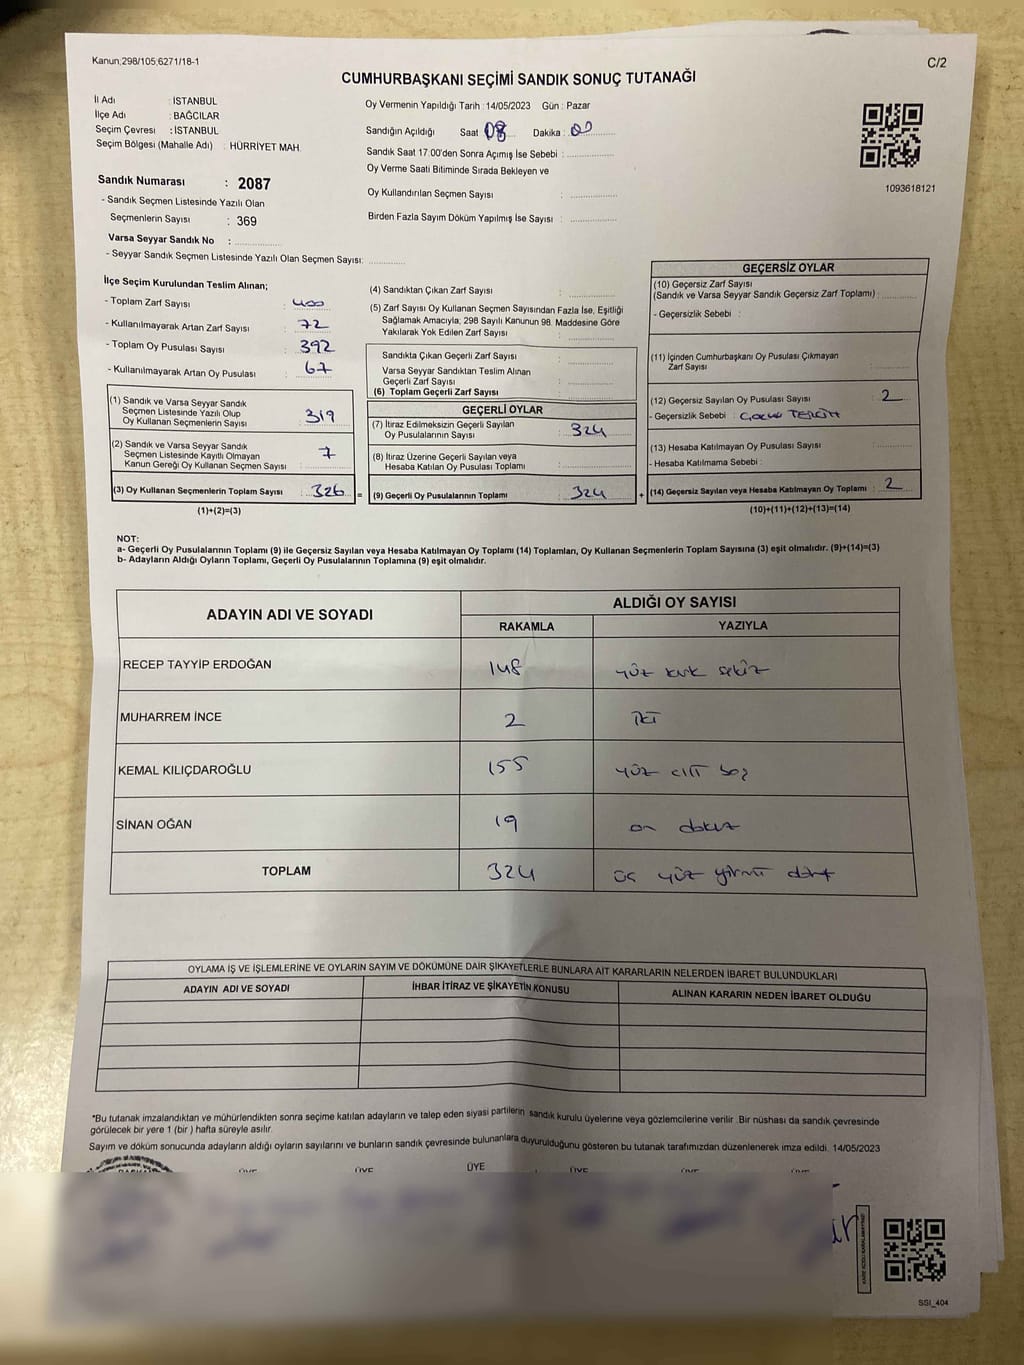 Kanun;298/105;6271/18-1
C/2
CUMHURBAŞKANI SEÇİMİ SANDIK SONUÇ TUTANAĞI
İl Adı : İSTANBUL
İlçe Adı : BAĞCILAR
Seçim Çevresi : İSTANBUL
Seçim Bölgesi (Mahalle Adı) : HÜRRİYET MAH.
Oy Vermenin Yapıldığı Tarih : 14/05/2023 Gün : Pazar
Sandığın Açıldığı Saat 08 Dakika : 00
Sandık Saat 17:00'den Sonra Açımış İse Sebebi :
Oy Verme Saati Bitiminde Sırada Bekleyen ve
Oy Kullandırılan Seçmen Sayısı :
Birden Fazla Sayım Döküm Yapılmış İse Sayısı :
1093618121
Sandık Numarası : 2087
- Sandık Seçmen Listesinde Yazılı Olan
Seçmenlerin Sayısı : 369
Varsa Seyyar Sandık No :
- Seyyar Sandık Seçmen Listesinde Yazılı Olan Seçmen Sayısı:
İlçe Seçim Kurulundan Teslim Alınan;
- Toplam Zarf Sayısı : 400
- Kullanılmayarak Artan Zarf Sayısı : 72
- Toplam Oy Pusulası Sayısı : 392
- Kullanılmayarak Artan Oy Pusulası : 67
(1) Sandık ve Varsa Seyyar Sandık
Seçmen Listesinde Yazılı Olup
Oy Kullanan Seçmenlerin Sayısı : 319
(2) Sandık ve Varsa Seyyar Sandık
Seçmen Listesinde Kayıtlı Olmayan
Kanun Gereği Oy Kullanan Seçmen Sayısı : 7
(3) Oy Kullanan Seçmenlerin Toplam Sayısı : 326 =
(1)+(2)=(3)
(4) Sandıktan Çıkan Zarf Sayısı :
(5) Zarf Sayısı Oy Kullanan Seçmen Sayısından Fazla İse, Eşitliği
Sağlamak Amacıyla; 298 Sayılı Kanunun 98. Maddesine Göre
Yakılarak Yok Edilen Zarf Sayısı :
Sandıkta Çıkan Geçerli Zarf Sayısı :
Varsa Seyyar Sandıktan Teslim Alınan
Geçerli Zarf Sayısı :
(6) Toplam Geçerli Zarf Sayısı :
GEÇERLİ OYLAR
(7) İtiraz Edilmeksizin Geçerli Sayılan
Oy Pusulalarının Sayısı : 324
(8) İtiraz Üzerine Geçerli Sayılan veya
Hesaba Katılan Oy Pusulası Toplamı :
(9) Geçerli Oy Pusulalarının Toplamı : 324 +
GEÇERSİZ OYLAR
(10) Geçersiz Zarf Sayısı
(Sandık ve Varsa Seyyar Sandık Geçersiz Zarf Toplamı) :
- Geçersizlik Sebebi :
(11) İçinden Cumhurbaşkanı Oy Pusulası Çıkmayan
Zarf Sayısı :
(12) Geçersiz Sayılan Oy Pusulası Sayısı : 2
- Geçersizlik Sebebi : ÇOKLU TERCİH
(13) Hesaba Katılmayan Oy Pusulası Sayısı :
- Hesaba Katılmama Sebebi :
(14) Geçersiz Sayılan veya Hesaba Katılmayan Oy Toplamı : 2
(10)+(11)+(12)+(13)=(14)
NOT:
a- Geçerli Oy Pusulalarının Toplamı (9) ile Geçersiz Sayılan veya Hesaba Katılmayan Oy Toplamı (14) Toplamları, Oy Kullanan Seçmenlerin Toplam Sayısına (3) eşit olmalıdır. (9)+(14)=(3)
b- Adayların Aldığı Oyların Toplamı, Geçerli Oy Pusulalarının Toplamına (9) eşit olmalıdır.
ADAYIN ADI VE SOYADI ALDIĞI OY SAYISI
RAKAMLA YAZIYLA
RECEP TAYYİP ERDOĞAN 148 yüz kırk sekiz
MUHARREM İNCE 2 iki
KEMAL KILIÇDAROĞLU 155 yüz elli beş
SİNAN OĞAN 19 on dokuz
TOPLAM 324 üç yüz yirmi dört
OYLAMA İŞ VE İŞLEMLERİNE VE OYLARIN SAYIM VE DÖKÜMÜNE DAİR ŞİKAYETLERLE BUNLARA AİT KARARLARIN NELERDEN İBARET BULUNDUKLARI
ADAYIN ADI VE SOYADI İHBAR İTİRAZ VE ŞİKAYETİN KONUSU ALINAN KARARIN NEDEN İBARET OLDUĞU
*Bu tutanak imzalandıktan ve mühürlendikten sonra seçime katılan adayların ve talep eden siyasi partilerin sandık kurulu üyelerine veya gözlemcilerine verilir. Bir nüshası da sandık çevresinde
görülecek bir yere 1 (bir ) hafta süreyle asılır.
Sayım ve döküm sonucunda adayların aldığı oyların sayılarını ve bunların sandık çevresinde bulunanlara duyurulduğunu gösteren bu tutanak tarafımızdan düzenlenerek imza edildi. 14/05/2023
ÜYE ÜYE ÜYE ÜYE ÜYE ÜYE
SSI_404